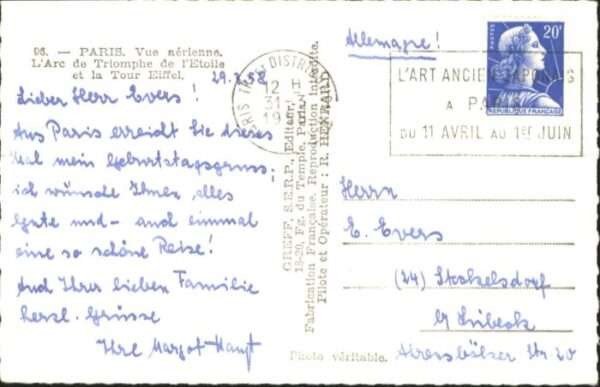 96. — PARIS. Vue aérienne.
L'Arc de Triomphe de l'Etoile
et la Tour Eiffel.
29.3.58
Lieber Herr Evers!
Aus Paris erreicht Sie dieses
Mal mein Geburtstagsgruss;
ich wünsche Ihnen alles
Gute und - auch einmal
eine so schöne Reise!
Auch Ihrer lieben Familie
herzl. Grüsse
Ihre Margot
GREFF, S.E.R.P., Editeur,
18-20, Fg. du Temple, Paris.
Fabrication Française. Reproduction interdite.
Pilote et Opérateur : R. HENRARD
Photo véritable.
Allemagne!
PARIS TRI DISTRI
12 H
31
19
L'ART ANCIEN JAPONAIS
A PARIS
DU 11 AVRIL AU 1er JUIN
POSTES
20F
REPUBLIQUE FRANÇAISE
Herrn
E. Evers
(24) Stockelsdorf
b/ Lübeck
Ahrensböker Str. 20